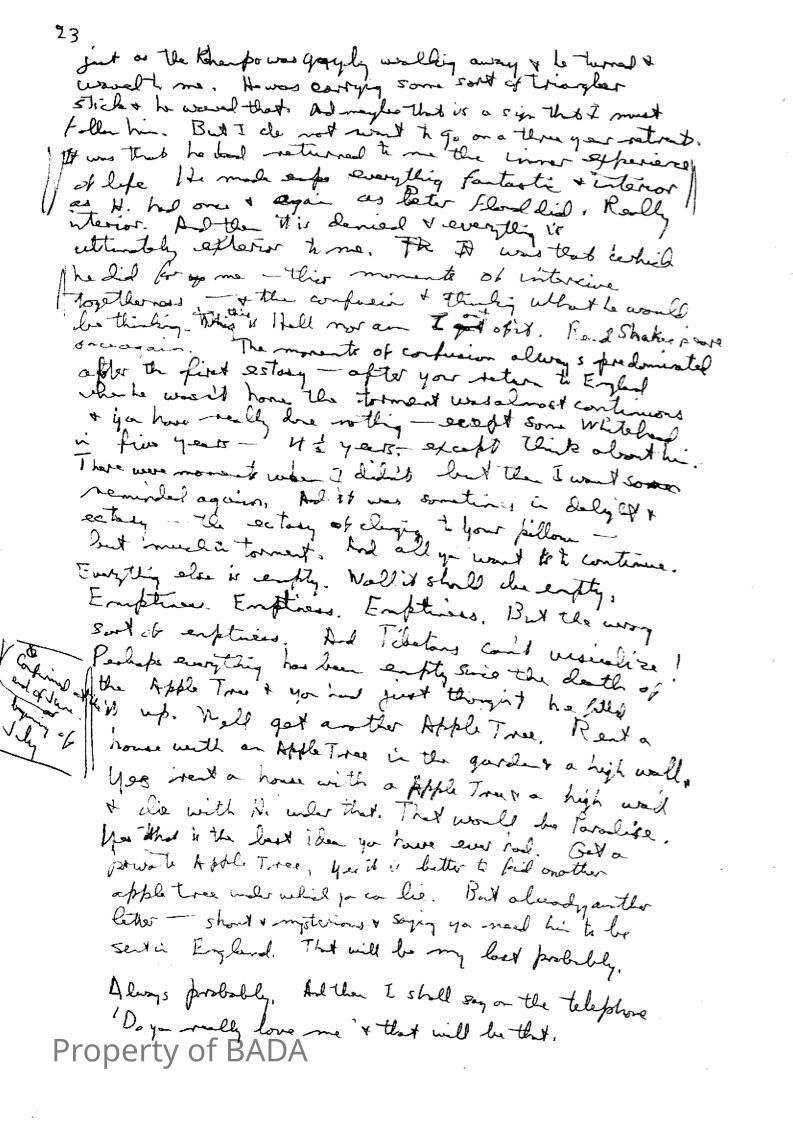 23
just as the Khenpo was gayly walking away & he turned &
waved to me. He was carrying some sort of triangular
stick & he waved that. And maybe that is a sign that I must
follow him. But I do not want to go on a three year retreat.
It was that he had returned to me the inner experience
of life He made everything fantastic & interior
as H. had once & again as Peter Flood did. Really
interior. And then it is denied & everything is
ultimately exterior to me. It was that which
he did for me — this moments of intensive
togetherness — & the confusion & thinking what he would
be thinking. this is Hell nor am I out of it. Read Shakespeare
once again. The moments of confusion always predominated
after the first ecstasy — after your return to England
when he wasn't home the torment was almost continuous
& you have really done nothing — except some Whitehead
in five years — 4½ years — except think about him.
There were moments when I didn't but then I was soon
reminded again. And it was sometimes in delight &
ecstasy — the ecstasy of clinging to your pillow —
but much in torment. And all you want is to continue.
Everything else is empty. Well it should be empty.
Emptiness. Emptiness. Emptiness. But the wrong
sort of emptiness. And Tibetans can't visualize!
Perhaps everything has been empty since the death of
the Apple Tree & you had just thought he filled
it up. Well get another Apple Tree. Rent a
house with an Apple Tree in the garden & a high wall.
Yes rent a house with a Apple Tree & a high wall
& lie with H. under that. That would be Paradise.
Yes that is the best idea you have ever had. Get a
private Apple Tree, yes it is better to find another
apple tree under which you can lie. But already another
letter — short & mysterious & saying you need him to be
sent in England. That will be my last probably.
Always probably. And then I shall say on the telephone
'Do you really love me' & that will be that.
Confirmed at
end of June
or
beginning of
July
Property of BADA